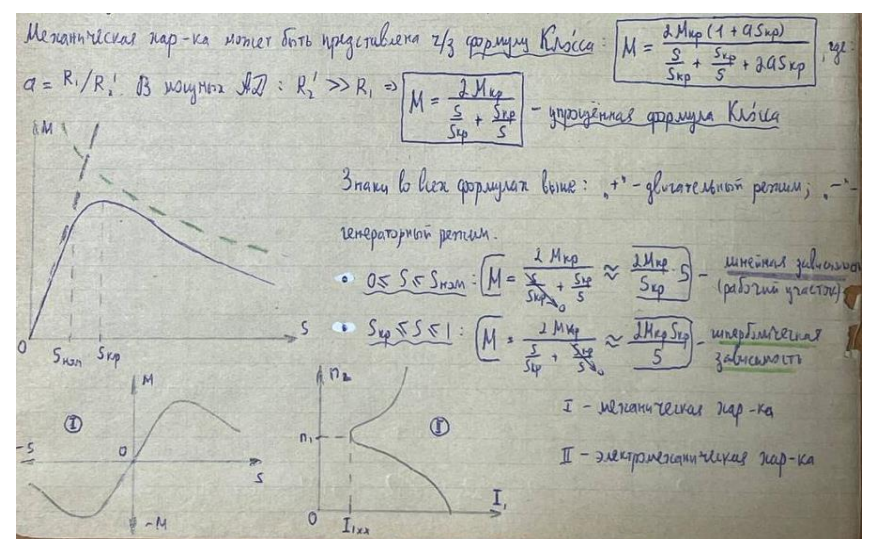 Механическая хар-ка может быть представлена ч/з формулу Клосса: M = 2Mкр(1 + aSкр) / (S/Sкр + Sкр/S + 2aSкр), где:
a = R₁/R₂'. В мощных АД: R₂' >> R₁ => M = 2Mкр / (S/Sкр + Sкр/S) - упрощённая формула Клосса
M
Знаки во всех формулах выше: "+" - двигательный режим; "-" -
генераторный режим.
0 ≤ S ≤ Sном: M = 2Mкр / (S/Sкр→0 + Sкр/S) ≈ 2Mкр/Sкр · S - линейная зависимость
(рабочий участок)
Sкр ≤ S ≤ 1: M = 2Mкр / (S/Sкр + Sкр/S→0) ≈ 2MкрSкр/S - гиперболическая
зависимость
0 Sном Sкр S
I M -S 0 S -M
n₂ n₁ II 0 I₁хх I₁
I - механическая хар-ка
II - электромеханическая хар-ка